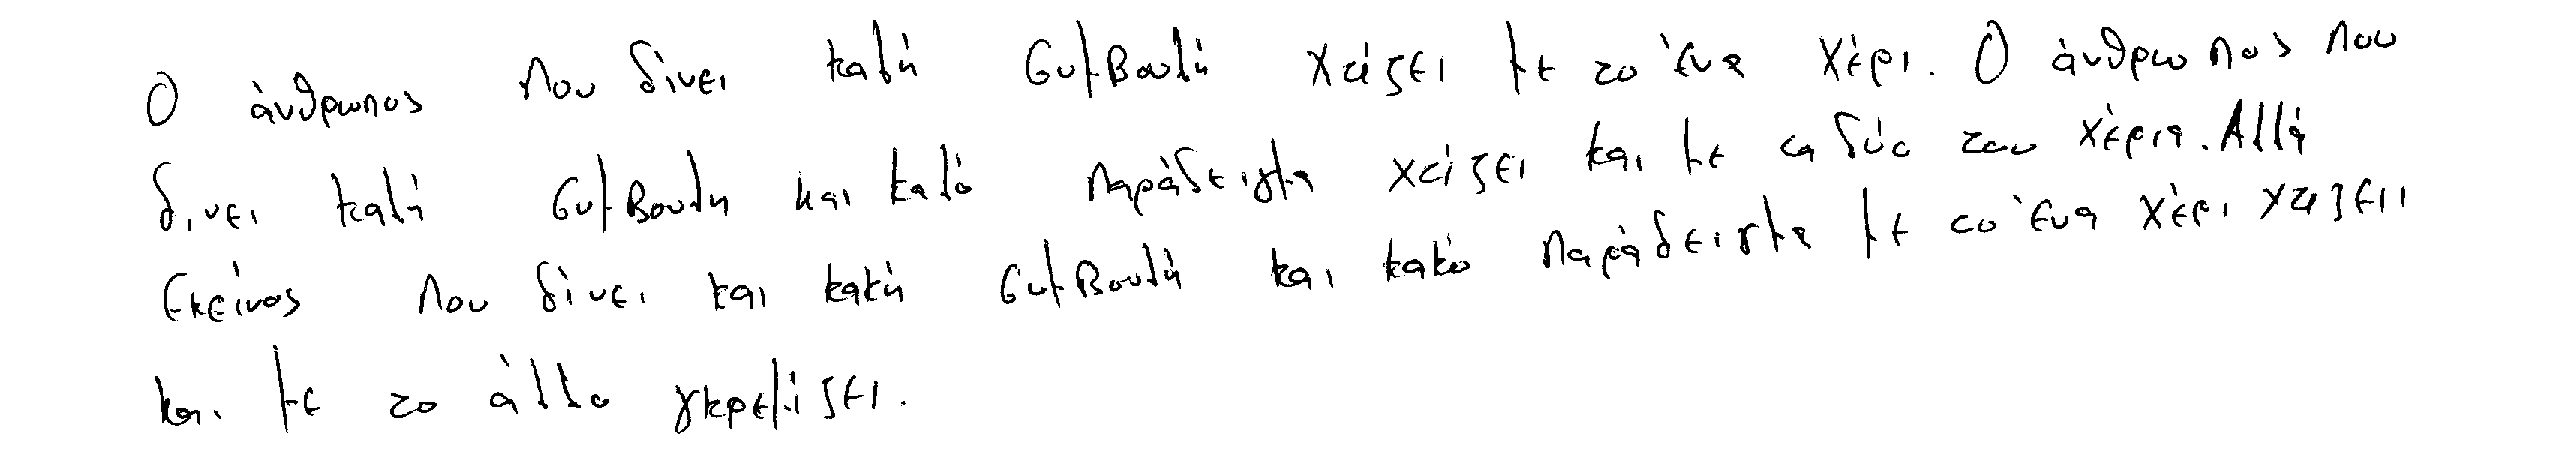 Ο άνθρωπος που δίνει καλή συμβουλή χτίζει με το ένα χέρι. Ο άνθρωπος που
δίνει καλή συμβουλη και καλό παράδειγμα χτίζει και με τα δύο του χέρια. Αλλά
εκείνος που δίνει και κακή συμβουλή και κακό παράδειγμα με το ένα χέρι χτίζει
και με το άλλο γκρεμίζει.